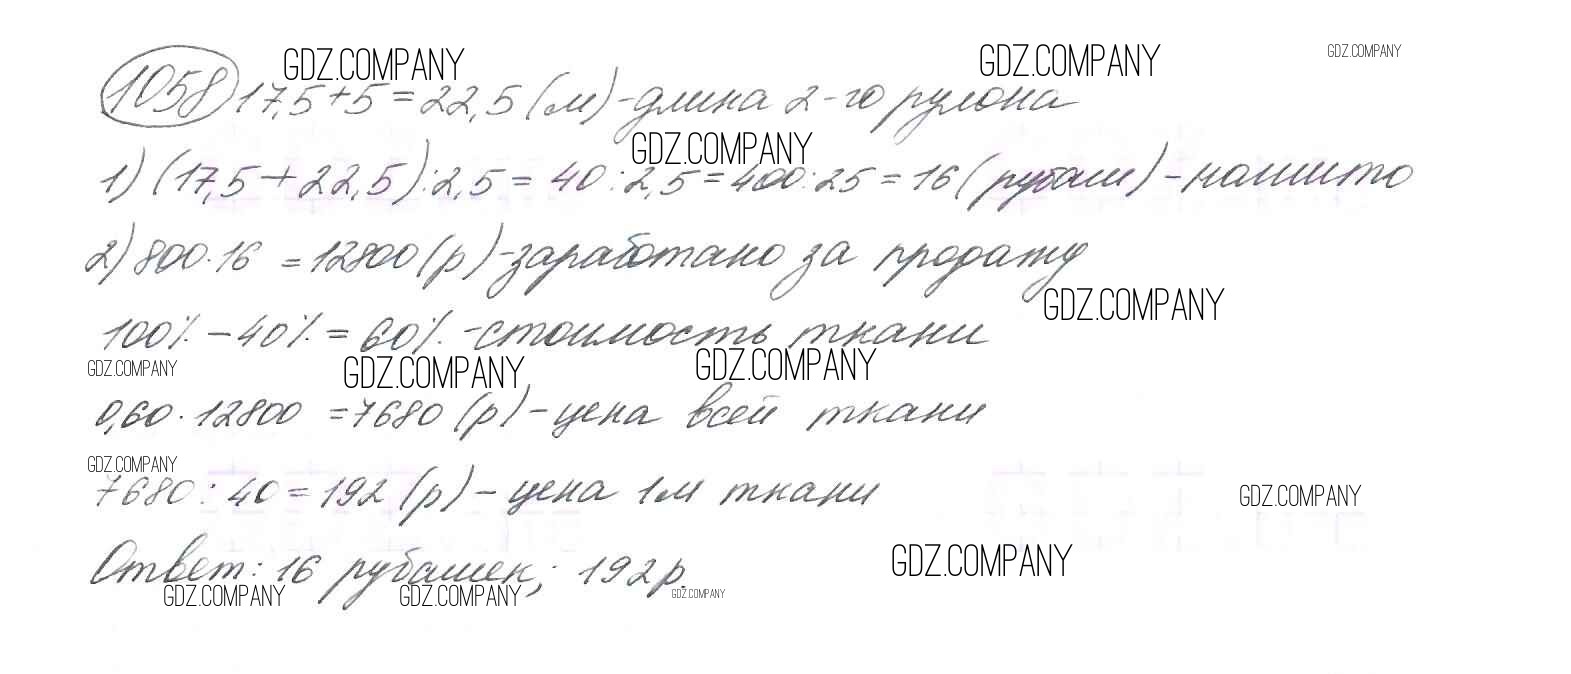 GDZ.COMPANY GDZ.COMPANY GDZ.COMPANY
1058 17,5+5=22,5 (м)-длина 2-го рулона
GDZ.COMPANY
1) (17,5+22,5):2,5=40:2,5=400:25=16 (рубаш)-нашито
2) 800·16 =12800 (р)-заработано за продажу
GDZ.COMPANY
100%-40%=60%-стоимость ткани
GDZ.COMPANY GDZ.COMPANY GDZ.COMPANY
0,60·12800 =7680 (р)-цена всей ткани
GDZ.COMPANY
7680:40=192 (р)-цена 1м ткани
GDZ.COMPANY
Ответ: 16 рубашек; 192р.
GDZ.COMPANY
GDZ.COMPANY GDZ.COMPANY GDZ.COMPANY